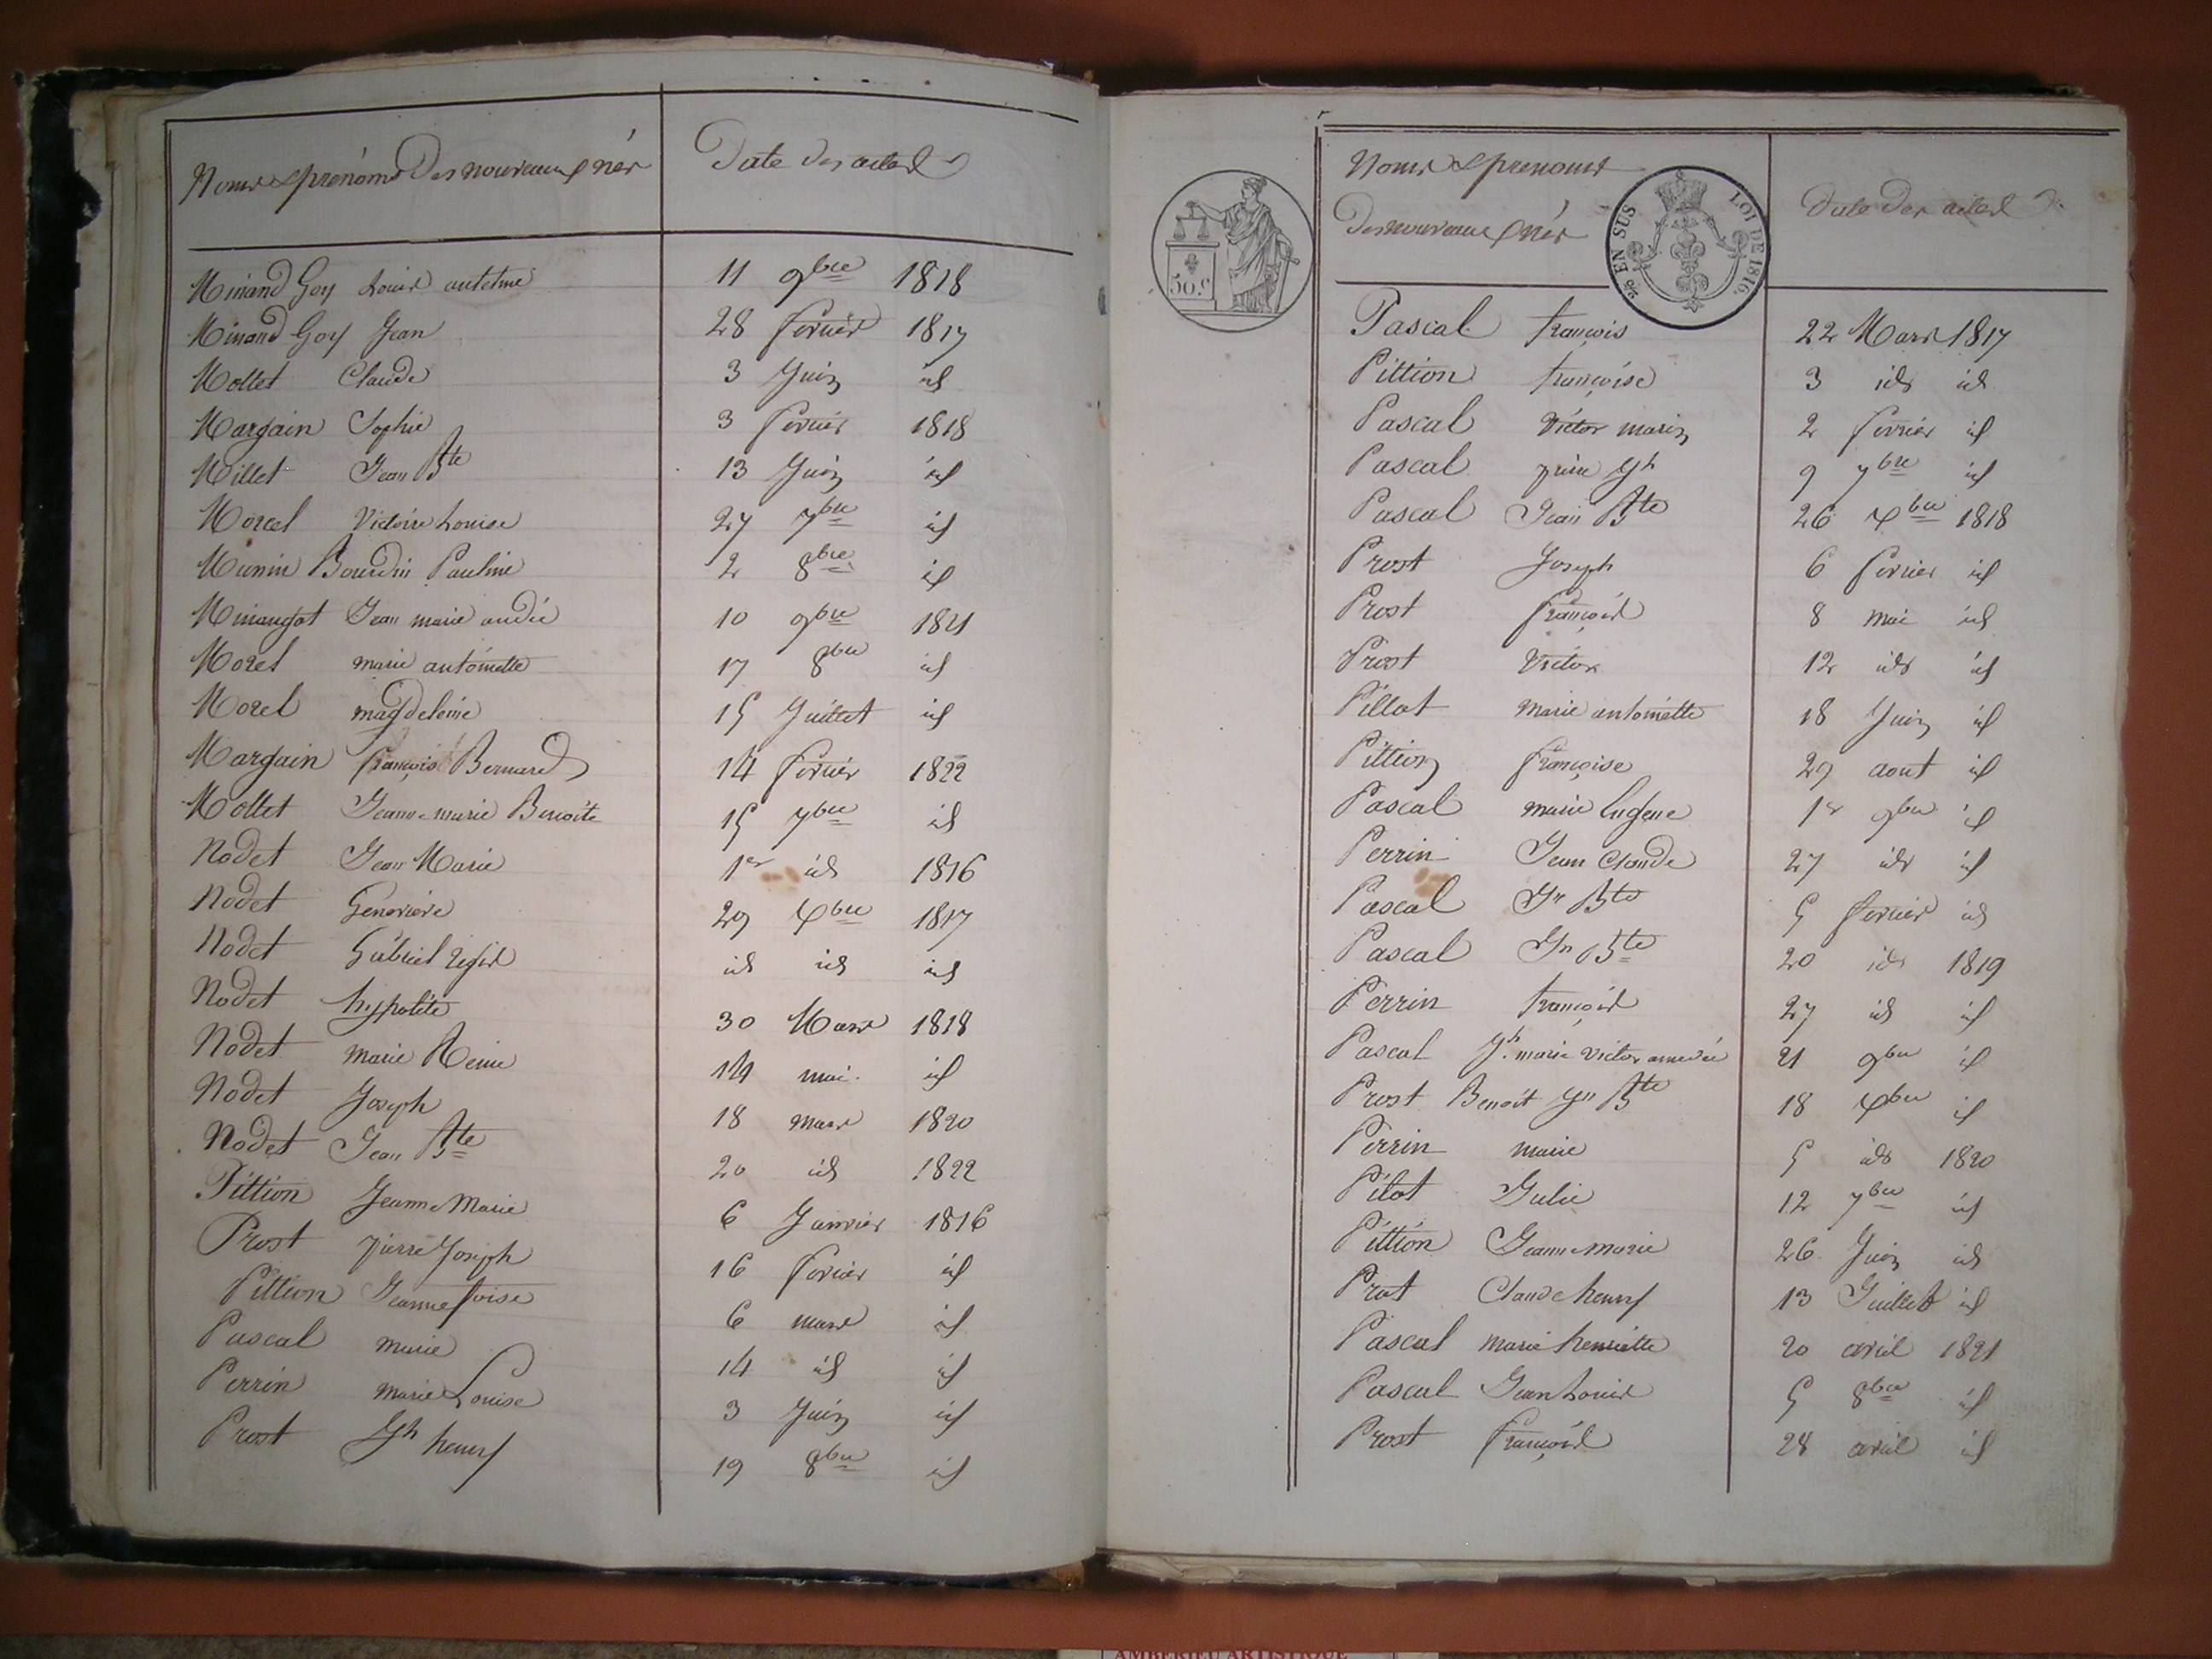 Noms & prénoms des nouveaux nés
Date des actes
Minand Goy Louis antelme 11 9bre 1818
Minand Goy Jean 28 fevrier 1817
Mollet Claude 3 Juin id
Margain Sophie 3 fevrier 1818
Millet Jean Bte 13 Juin id
Morel Victoire Louise 27 7bre id
Munin Bourdin Pauline 2 8bre id
Jean marie andré 10 9bre 1821
Morel marie antoinette 17 8bre id
Morel magdeleine 15 Juillet id
Margain françois Bernard 14 fevrier 1822
Mollet Jeanne marie Benoite 15 7bre id
Nodet Jean Marie 1er id 1816
Nodet Génevieve 29 Xbre 1817
Nodet Gabriel Régis id id id
Nodet hypolite 30 Mars 1818
Nodet marie Reine 14 mai id
Nodet Joseph 18 mars 1820
Nodet Jean Bte 20 id 1822
Pittion Jeanne Marie 6 Janvier 1816
Prost pierre Joseph 16 fevrier id
Pittion Jeanne foise 6 mars id
Pascal marie 14 id id
Perrin marie Louise 3 Juin id
Prost Jh henry 19 8bre id
Noms & prenoms
des nouveaux nés
Date des actes
50 c.
EN SUS
LOI DE 1816.
Pascal françois 22 Mars 1817
Pittion françoise 3 id id
Pascal Victor marin 2 fevrier id
Pascal pierre Jh 9 7bre id
Pascal Jean Bte 26 Xbre 1818
Prost Joseph 6 fevrier id
Prost françois 8 mai id
Prost Victor 12 id id
Pillot marie antoinette 18 Juin id
Pittion françoise 29 aout id
Pascal marie Eugene 1er 9bre id
Perrin Jean Claude 27 id id
Pascal Jn Bte 5 fevrier id
Pascal Jn Bte 20 id 1819
Perrin françois 27 id id
Pascal Jh marie victor amedée 21 9bre id
Prost Benoit Jn Bte 18 Xbre id
Perrin marie 5 id 1820
Pilot Julie 12 7bre id
Pittion Jeanne marie 26 Juin id
Prat Claude henry 13 Juillet id
Pascal marie henriette 20 avril 1821
Pascal Jean Louis 5 8bre id
Prost françois 28 avril id
AMBERIEU ARTISTIQUE